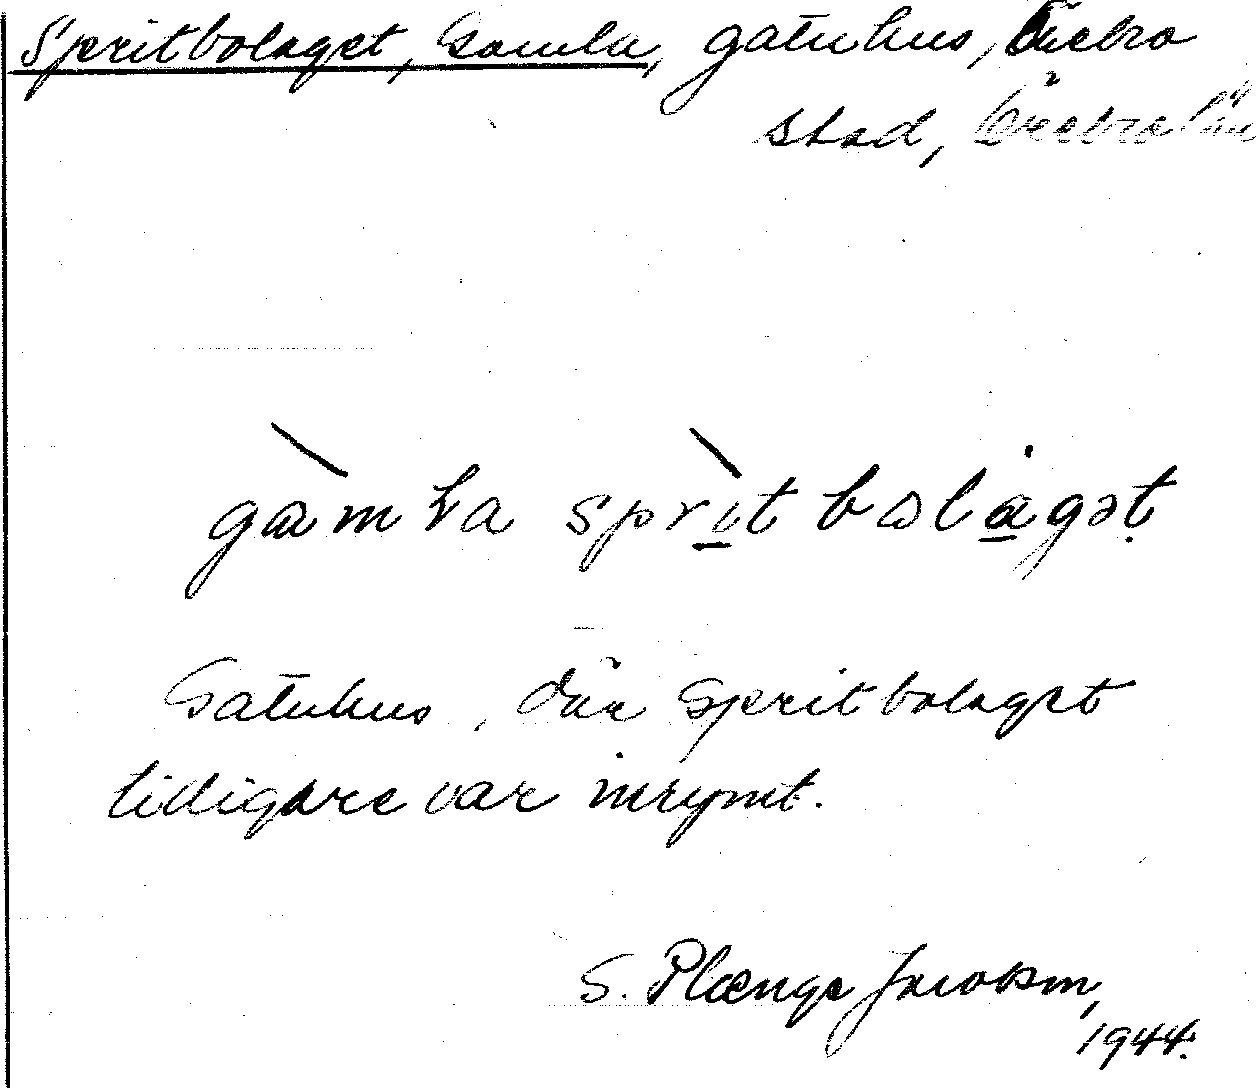 Spritbolaget, Gamla, gatuhus, Örebro
stad, Örebro län
gàmla sprìtbolágət
Gatuhus, där Spritbolaget
tidigare var inrymt.
S. Plænge Jacobson,
1944.